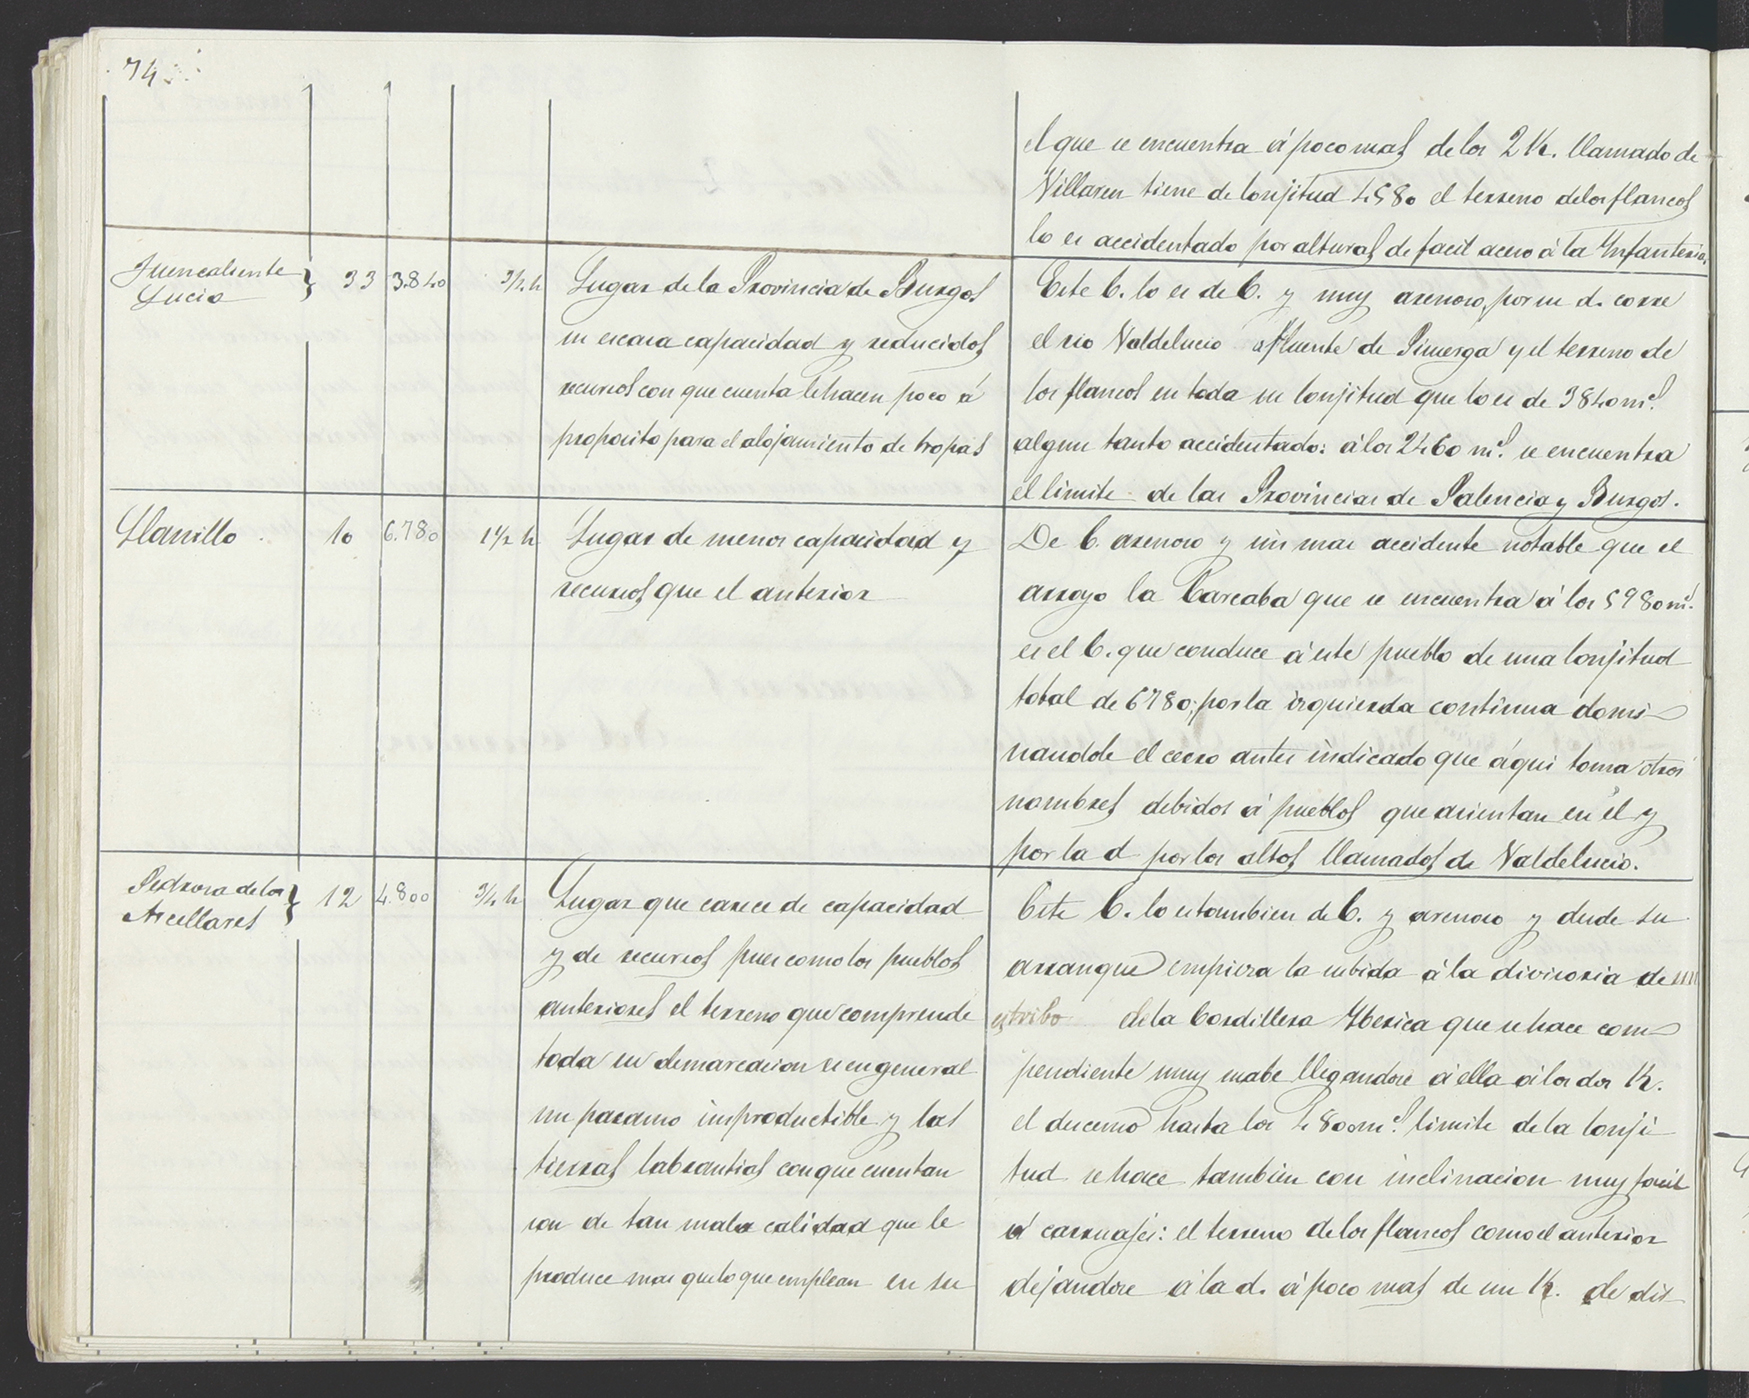 74
el que se encuentra á poco mas de los 2 K. llamado de
Villaren tiene de lonjitud 4580 el terreno de los flancos
lo es accidentado por alturas de facil acceso á la Infanteria.
Fuencaliente
Lucio } 33 3.840 3/4 h
Lugar de la Provincia de Burgos
su escasa capacidad y reducidos
recursos con que cuenta le hacen poco á
proposito para el alojamiento de tropas
Este C. lo es de C. y muy arenoso, por su d. corre
el rio Valdelucio afluente de Pisuerga y el terreno de
los flancos en toda su lonjitud que lo es de 3840 ms.
algun tanto accidentado: á los 2460 ms. se encuentra
el limite de las Provincias de Palencia y Burgos.
Llanillo 10 6.780 1 1/2 h
Lugar de menor capacidad y
recursos que el anterior
De C. arenoso y sin mas accidente notable que el
arroyo la Carcaba que se encuentra á los 5980 ms.
es el C. que conduce á este pueblo de una lonjitud
total de 6780; por la izquierda continua domi-
nandole el cerro antes indicado que áqui toma otros
nombres debidos á pueblos que asientan en él y
por la d por los altos llamados de Valdelucio.
Pedrosa de los
Arcellares } 12 4.800 3/4 h
Lugar que carece de capacidad
y de recursos pues como los pueblos
anteriores el terreno que comprende
toda su demarcacion es en general
un paramo improductible y las
tierras labrantias con que cuentan
son de tan mala calidad que le
produce mas que lo que emplean en su
Este C. lo es tambien de C. y arenoso y desde su
arranque empieza la subida á la divisoria de un
estribo de la Cordillera Iberica que se hace com
pendiente muy suabe llegandose á ella á los dos K.
el descenso hasta los 4800 ms. limite de la lonji
tud se hace tambien con inclinacion muy facil
á carruajes: el terreno de los flancos como el anterior
dejandose á la d. á poco mas de un K. de dis